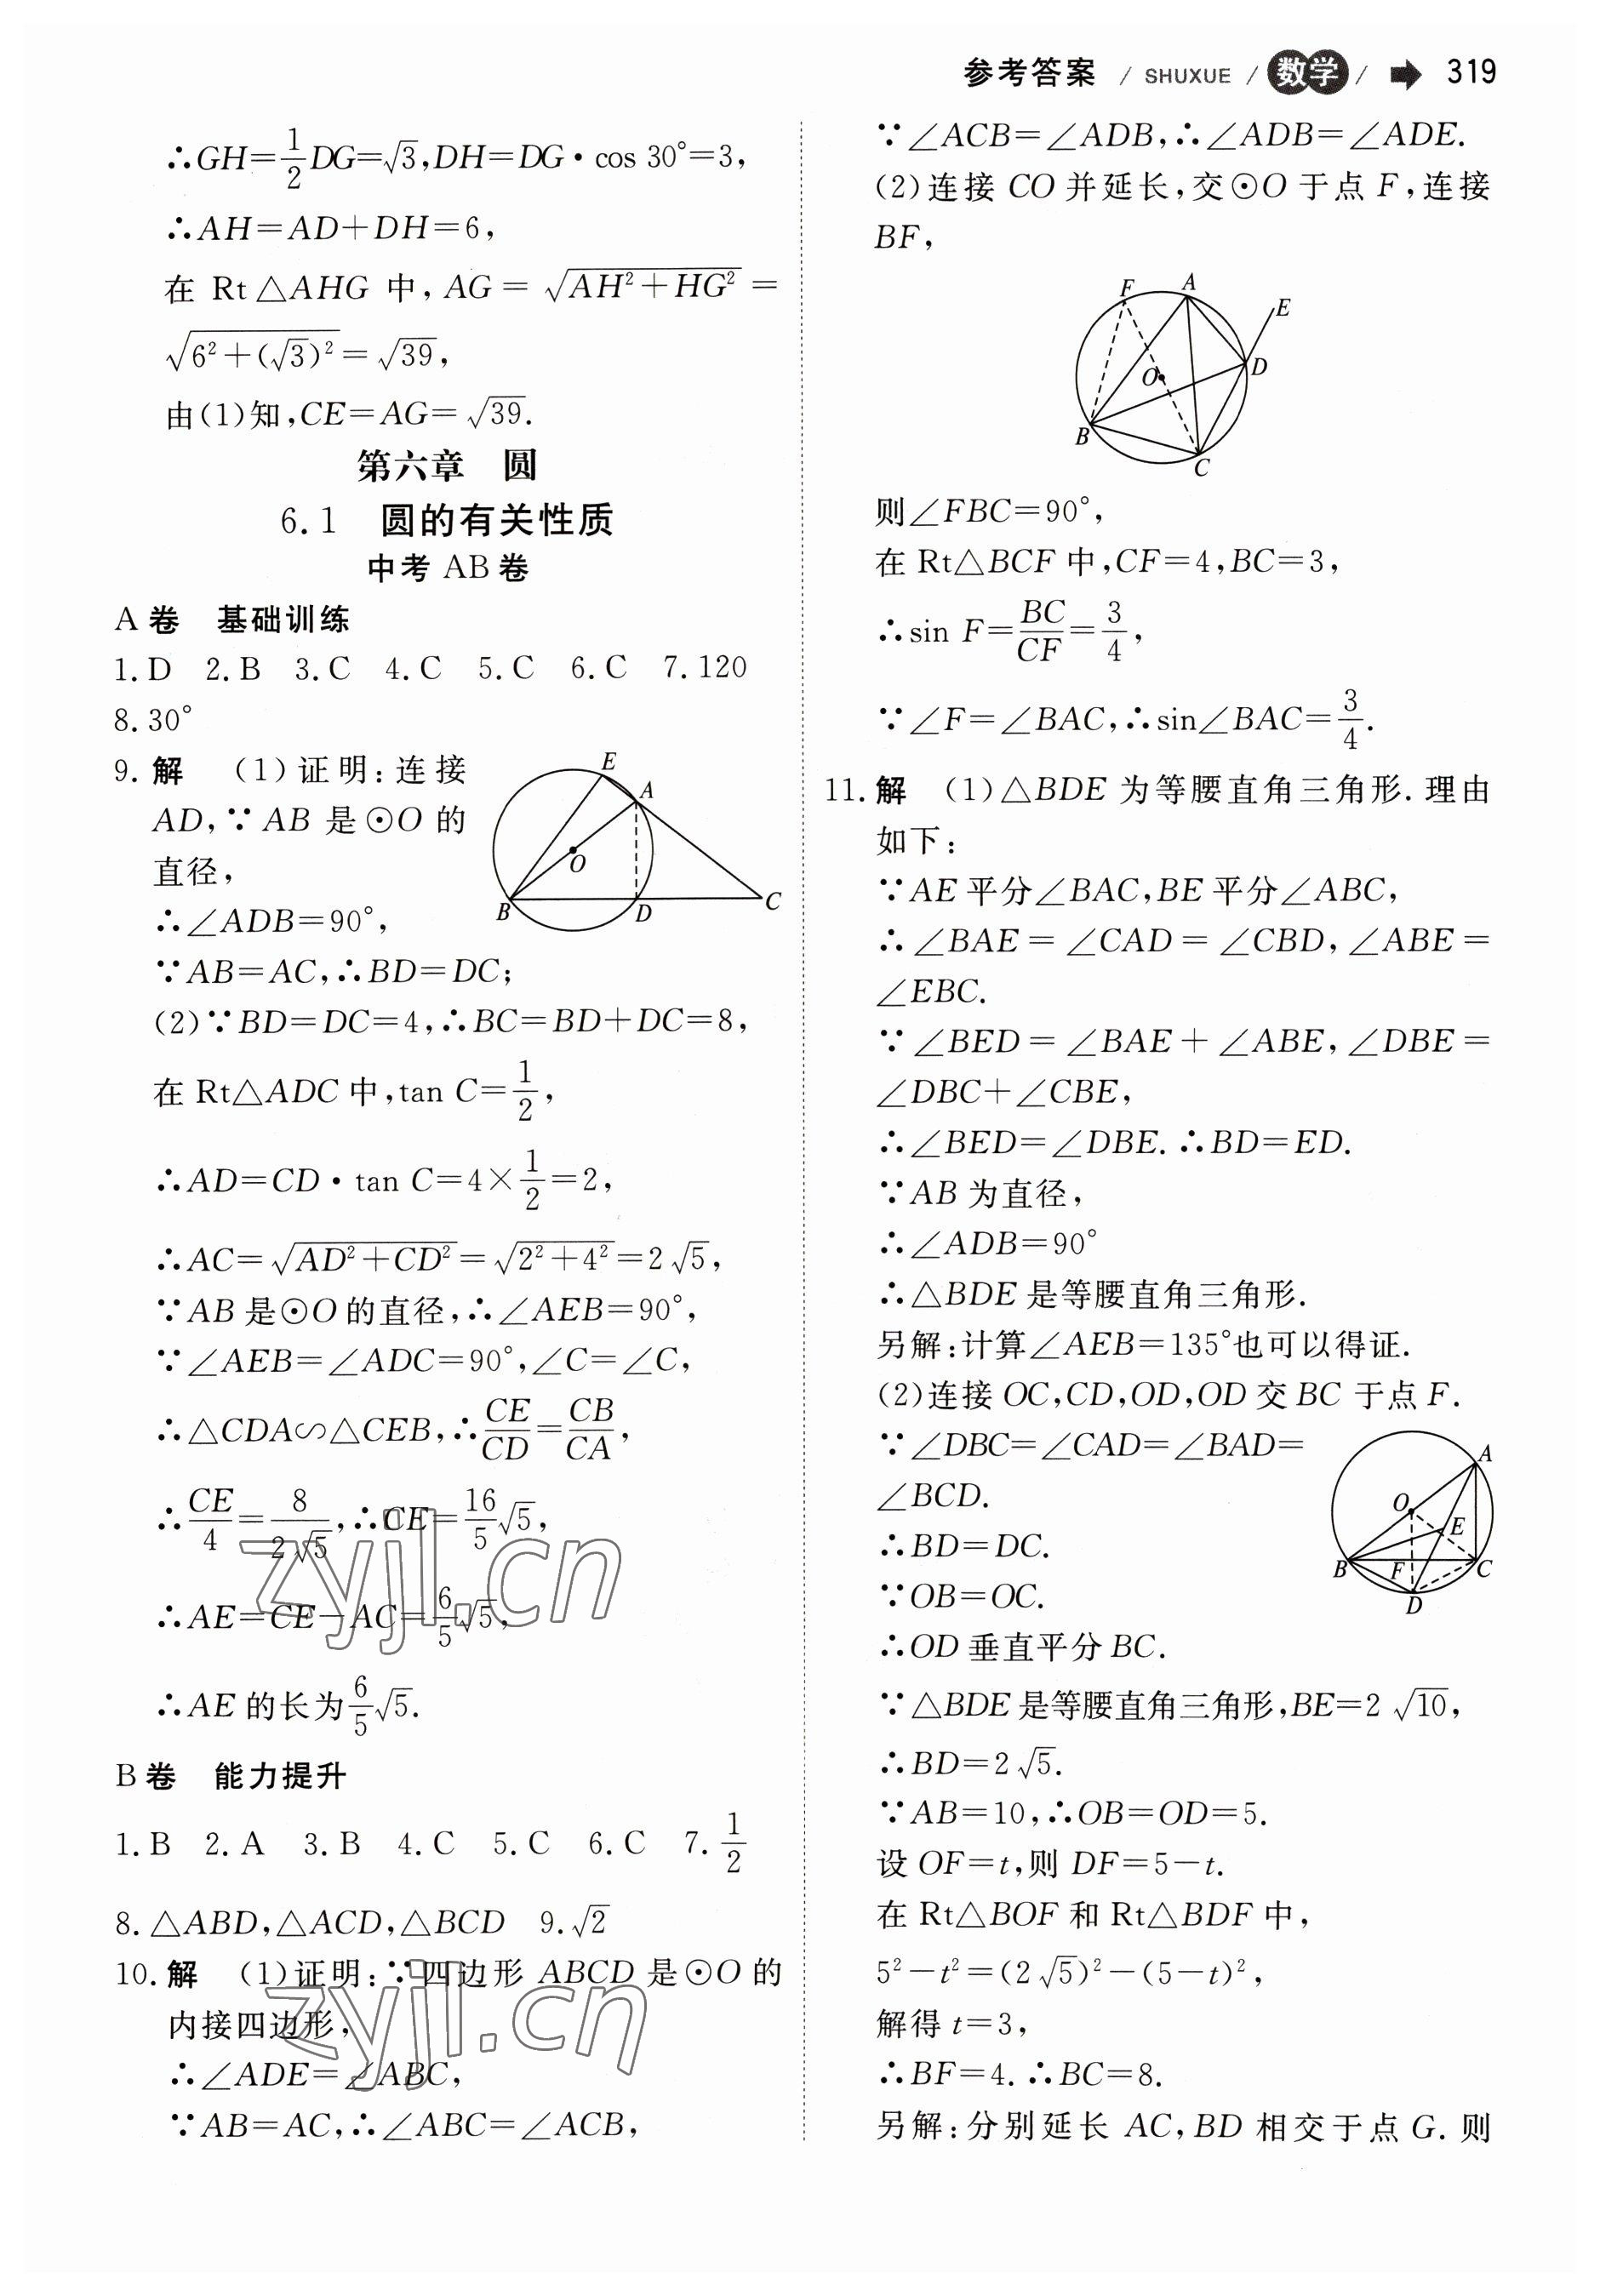 参考答案 / SHUXUE / 数学 / 319
∴GH=\frac{1}{2}DG=√3,DH=DG·cos 30°=3,
∴AH=AD+DH=6,
在 Rt△AHG 中,AG=√(AH²+HG²)=
√(6²+(√3)²)=√39,
由(1)知,CE=AG=√39.
第六章 圆
6.1 圆的有关性质
中考 AB卷
A卷 基础训练
1.D 2.B 3.C 4.C 5.C 6.C 7.120
8.30°
9.解 (1)证明:连接
AD,∵AB 是⊙O 的
直径,
∴∠ADB=90°,
∵AB=AC,∴BD=DC;
E
A
O
B
D
C
(2)∵BD=DC=4,∴BC=BD+DC=8,
在 Rt△ADC 中,tan C=\frac{1}{2},
∴AD=CD·tan C=4×\frac{1}{2}=2,
∴AC=√(AD²+CD²)=√(2²+4²)=2√5,
∵AB 是⊙O 的直径,∴∠AEB=90°,
∵∠AEB=∠ADC=90°,∠C=∠C,
∴△CDA∽△CEB,∴\frac{CE}{CD}=\frac{CB}{CA},
∴\frac{CE}{4}=\frac{8}{2√5},∴CE=\frac{16}{5}√5,
∴AE=CE-AC=\frac{6}{5}√5,
∴AE 的长为\frac{6}{5}√5.
zyjl.cn
B卷 能力提升
1.B 2.A 3.B 4.C 5.C 6.C 7.\frac{1}{2}
8.△ABD,△ACD,△BCD 9.√2
10.解 (1)证明:∵四边形 ABCD 是⊙O 的
内接四边形,
∴∠ADE=∠ABC,
∵AB=AC,∴∠ABC=∠ACB,
zyjl.cn
∵∠ACB=∠ADB,∴∠ADB=∠ADE.
(2)连接 CO 并延长,交⊙O 于点 F,连接
BF,
F
A
E
O
D
B
C
则∠FBC=90°,
在 Rt△BCF 中,CF=4,BC=3,
∴sin F=\frac{BC}{CF}=\frac{3}{4},
∵∠F=∠BAC,∴sin∠BAC=\frac{3}{4}.
11.解 (1)△BDE 为等腰直角三角形.理由
如下:
∵AE 平分∠BAC,BE 平分∠ABC,
∴∠BAE=∠CAD=∠CBD,∠ABE=
∠EBC.
∵∠BED=∠BAE+∠ABE,∠DBE=
∠DBC+∠CBE,
∴∠BED=∠DBE.∴BD=ED.
∵AB 为直径,
∴∠ADB=90°
∴△BDE 是等腰直角三角形.
另解:计算∠AEB=135°也可以得证.
(2)连接 OC,CD,OD,OD 交 BC 于点 F.
∵∠DBC=∠CAD=∠BAD=
∠BCD.
∴BD=DC.
∵OB=OC.
∴OD 垂直平分 BC.
A
O
E
B
F
C
D
∵△BDE 是等腰直角三角形,BE=2√10,
∴BD=2√5.
∵AB=10,∴OB=OD=5.
设 OF=t,则 DF=5-t.
在 Rt△BOF 和 Rt△BDF 中,
5²-t²=(2√5)²-(5-t)²,
解得 t=3,
∴BF=4.∴BC=8.
另解:分别延长 AC,BD 相交于点 G.则